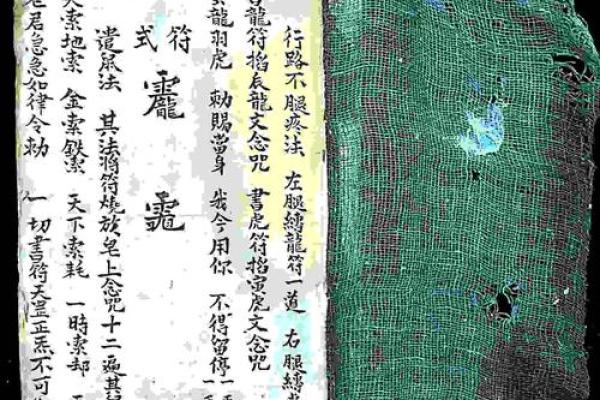 行路不腿疼法 左腿縛龍符一道 右腿縛
書龍符掐辰龍文念咒 書虎符掐寅虎文念咒
龍羽虎 勅賜當身 我今用你 不得留停 一
符式
靇
遣鼠法 其法將符燒於皂上念咒十二遍其
天索地索 金索鉄索 天下索耗 一時索却
老君急急如律令勅 一切書符天罡正炁不可